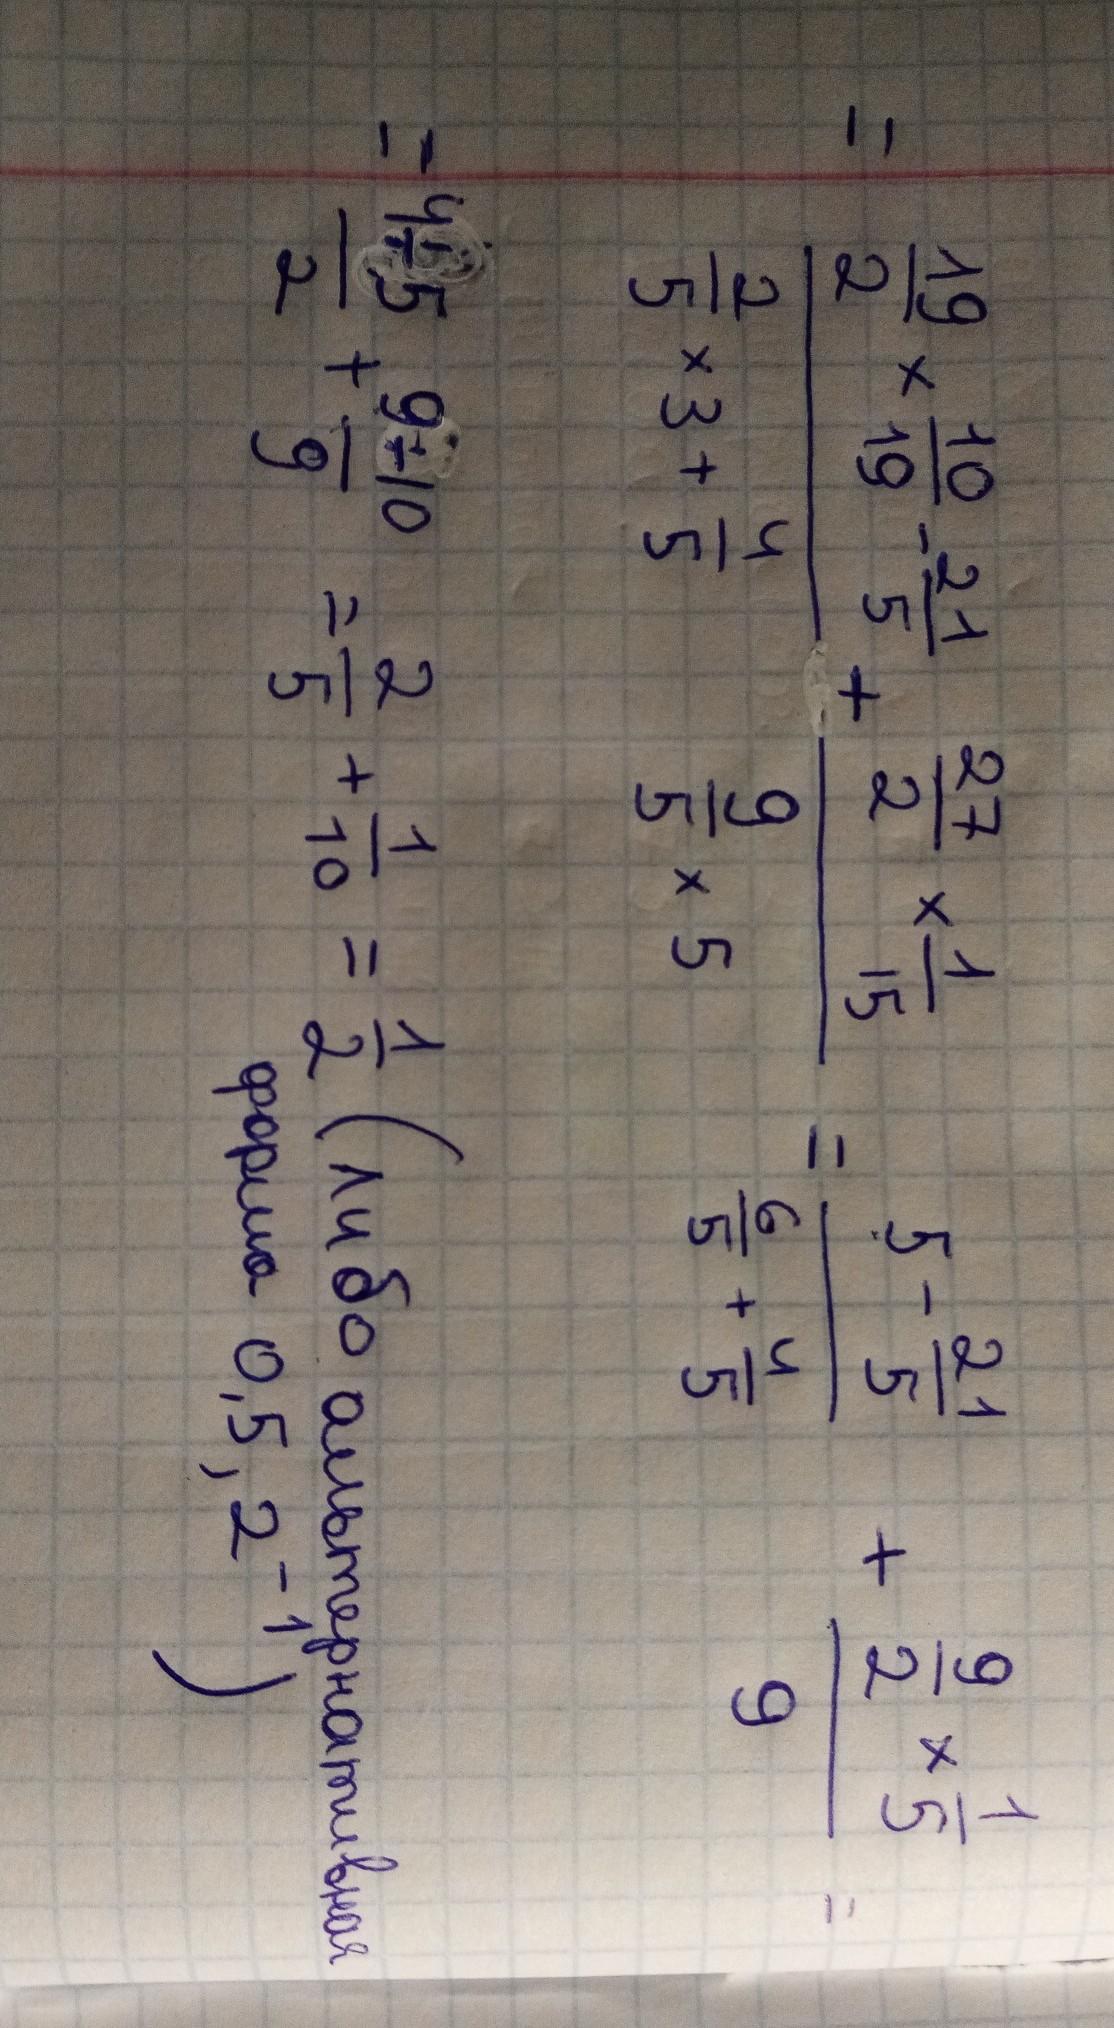 = (19/2 × 10/19 - 21/5)/(2/5 × 3 + 4/5) + (27/2 × 1/15)/(9/5 × 5) = (5 - 21/5)/(6/5 + 4/5) + (9/2 × 1/5)/9 =
= (4÷5)/2 + (9÷10)/9 = 2/5 + 1/10 = 1/2 (либо альтернативная
форма 0,5, 2⁻¹)